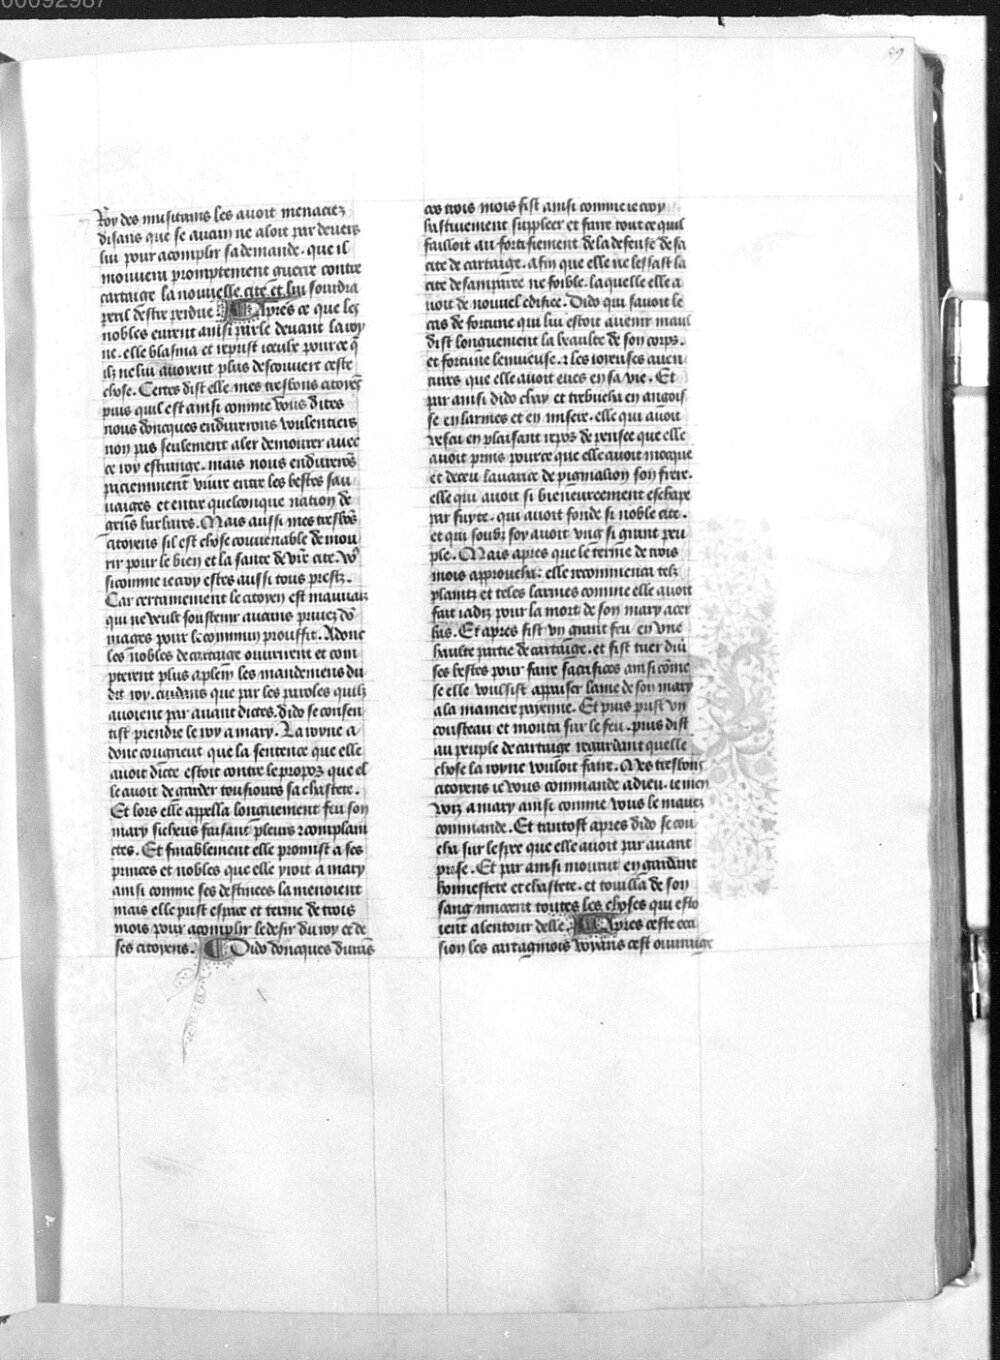 00092987
59
Roy des musitains les auoit menaciez
disans que se aucun ne aloit par deuers
lui pour acomplir sa demande. que il
mouueroit promptement guerre contre
cartaige la nouuelle cite et lui sourdra
peril destre perdue. Apres ce que les
nobles eurent ainsi parle deuant la roy
ne. elle blasma et reprist iceulx pource q̄
ilz ne lui auoient plus descouuert ceste
chose. Certes dist elle mes tresbons citoyēs
puis quil est ainsi comme vous dites
nous doncques endurerons voulentiers
non pas seulement aler demourer auec
ce roy estrange. mais nous endurerōs
paciemment viure entre les bestes sau
uaiges et entre quelconque nation de
gens barbares. Mais aussi mes tresbōs
citoyens sil est chose conuenable de mou
rir pour le bien et la sante de vr̄e cite. vo⁹
sicomme ie croy estes aussi tous prestz.
Car certainement le citoyen est mauuaiz
qui ne veult soustenir aucuns priuez dō
mages pour le commun prouffit. Adonc
les nobles de cartaige ouurirent et com
pterent plus aplein les mandemens du
dit roy. cuidans que par les paroles quilz
auoient par auant dictes. dido se consen
tist prendre le roy a mary. La royne a
donc congneut que la sentence que elle
auoit dicte estoit contre le propoz que el
le auoit de garder tousiours sa chastete.
Et lors elle appella longuement feu son
mary sicheus faisant pleurs ⁊ complain
ctes. Et finablement elle promist a ses
princes et nobles que elle yroit a mary
ainsi comme ses destinees la menoient
mais elle prist espace et terme de trois
mois pour acomplir le desir du roy et de
ses citoyens. Dido doncques durās
ces trois mois fist ainsi comme ie croy
hastiuement suppleer et faire tout ce quil
failloit au fortifiement de la defense de sa
cite de cartaige. Afin que elle ne lessast la
cite desamparee ne foible. laquelle elle a
uoit de nouuel edifiee. Dido qui sauoit le
cas de fortune qui lui estoit auenir maul
dist longuement la beaulte de son corps.
et fortune lenuieuse. ⁊ les ioyeuses auen
tures que elle auoit eues en sa vie. Et
par ainsi dido chay et trebucha en angois
se en larmes et en misere. elle qui auoit
vescu en plaisant repos de pensee que elle
auoit prins pource que elle auoit mocque
et deceu lauarice de pigmalion son frere.
elle qui auoit si bieneureement eschape
par fuyte. qui auoit fonde si noble cite.
et qui soubz soy auoit vng si grant peu
ple. Mais apres que le terme de trois
mois approucha: elle recommenca telz
plaintz et teles larmes comme elle auoit
fait iadiz pour la mort de son mary acer
bas. Et apres fist vn grant feu en vne
haulte partie de cartaige. et fist tuer diu
ses bestes pour faire sacrifices ainsi cōme
se elle voulsist appaiser lame de son mary
a la maniere payenne. Et puis prist vn
cousteau et monta sur le feu. puis dist
au peuple de cartaige regardant quelle
chose la royne vouloit faire. Mes tresbons
citoyens ie vous commande adieu. ie men
voiz a mary ainsi comme vous le mauez
commande. Et tantost apres dido se cou
cha sur lespee que elle auoit par auant
prise. Et par ainsi mourut en gardant
honnestete et chastete. et touilla de son
sang innocent toutes les choses qui esto
ient alentour delle. Apres ceste occa
sion les cartaginois voyans cest ouuraige